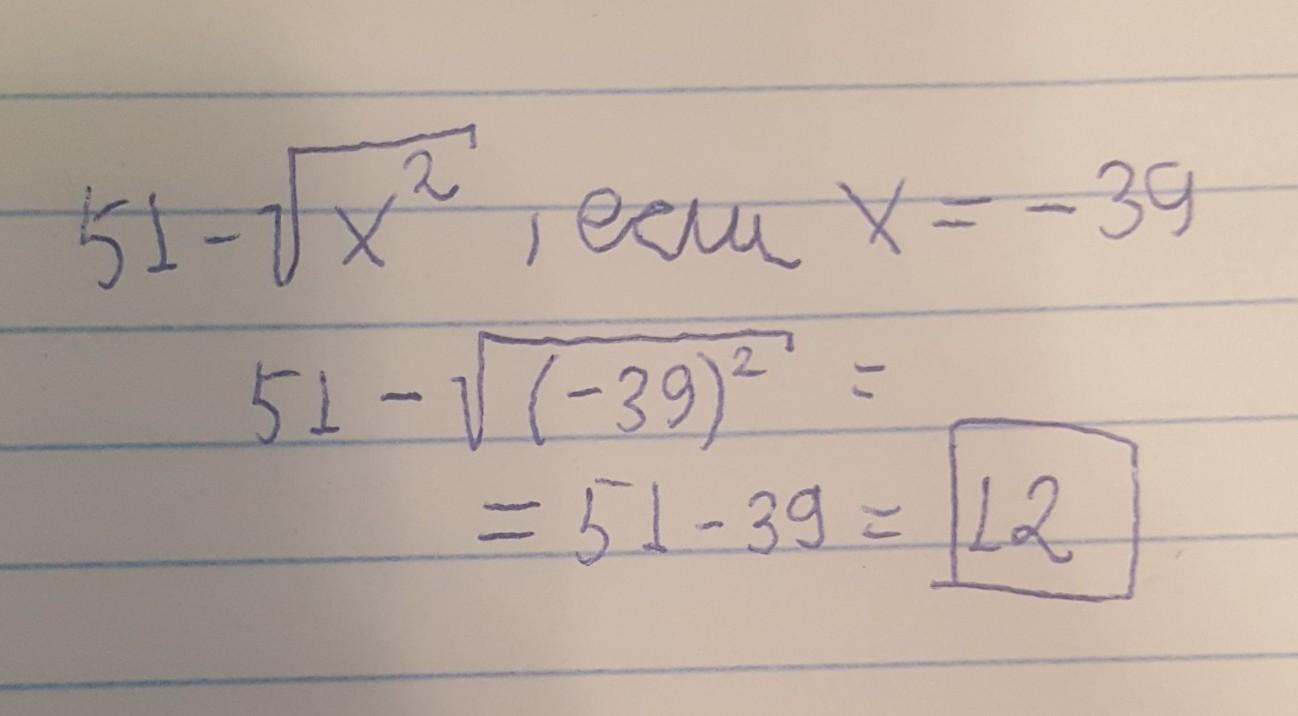 51-√x², если x=-39
51-√(-39)² =
=51-39=12